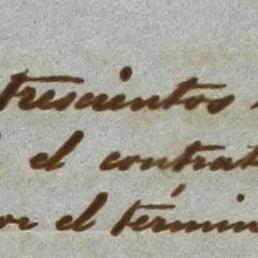 trescientos
el contrat
or el términ